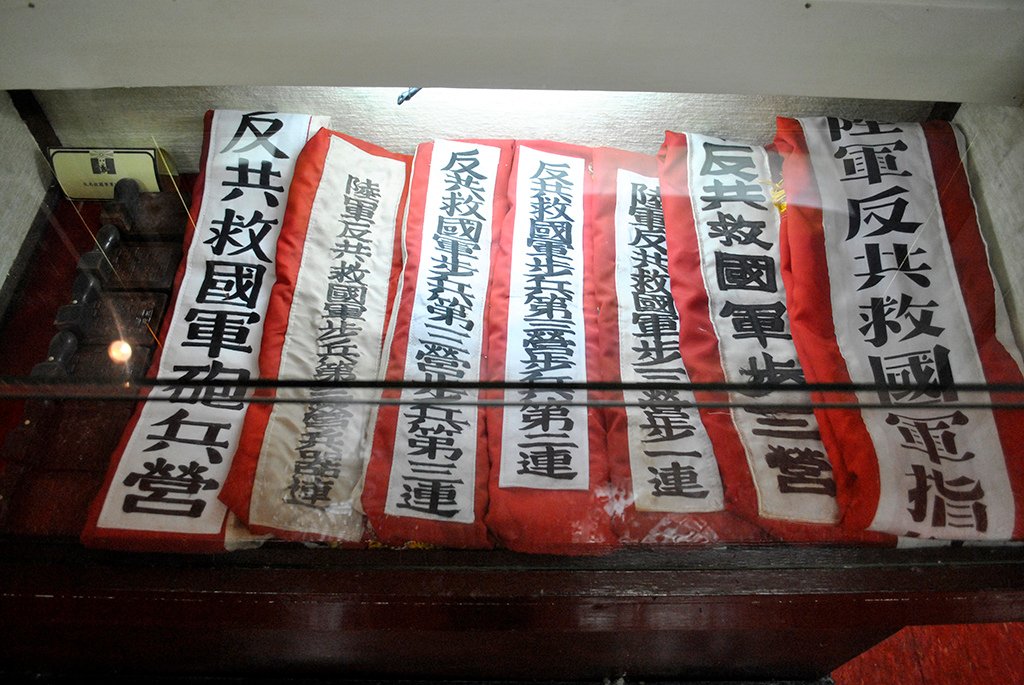 陸軍反共救國軍指
反共救國軍步三營
陸軍反共救國軍步三營步一連
反共救國軍步兵第三營步兵第二連
反共救國軍步兵第三營步兵第三連
陸軍反共救國軍步兵第三營兵器連
反共救國軍砲兵營